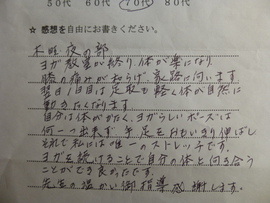 50代 60代 70代 80代
☆ 感想を自由にお書きください。
木曜夜の部
ヨガ教室が終り、体が楽になり
膝の痛みが和らげ、家路に向います。
翌日1日目は足取も軽く体が自然に
動きたくなります。
自分は体がかたく、ヨガらしいポーズは
何一つ出来ず、手足をおもいきり伸ばし
それで私には唯一のストレッチです。
ヨガを続けることで自分の体と向き合う
ことができ良かったです。
先生の温かい御指導感謝します。